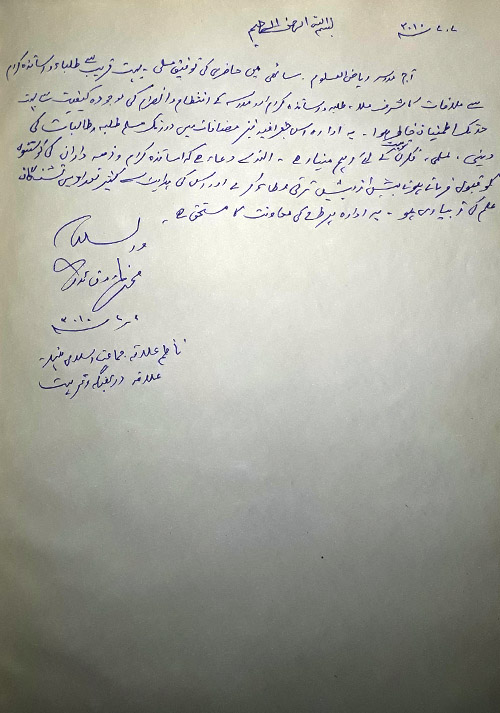 بسم اللہ الرحمن الرحیم
۲۰۱۰ء
آج مدرسہ ریاض العلوم ساٹھی میں حاضری کی توفیق ملی۔ بہت قریب سے طلباء و اساتذہ کرام
سے ملاقات کا شرف ملا۔ طلبہ و اساتذہ کرام اور مدرسہ کے انتظام و انصرام کی موجودہ کیفیت سے بہت
حد تک اطمینان خاطر ہوا۔ یہ ادارہ اس جغرافیہ نیز مضافات میں اور تک مسلم طلبہ و طالبات کی
دینی، علمی، فکری تربیت کے لئے اہم مینار ہے۔ اللہ سے دعا ہے کہ اساتذہ کرام و ذمہ داران کی کوششوں
کو قبول فرماتے ہوئے بیش از بیش ترقی عطا کرے اور اس کی سے کثیر تعداد میں تشنگان
علم کی آبیاری ہو۔ یہ ادارہ ہر طرح کی معاونت کا مستحق ہے۔
والسلام
محمد
۲۰۱۰ء
ناظم علاقہ جماعت اسلامی ہند
علاقہ دربھنگہ